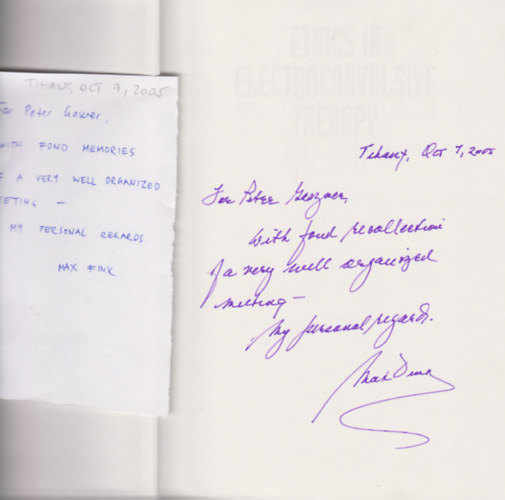 TIHANY, OCT 7, 2005
For Peter
WITH FOND MEMORIES
A VERY WELL ORGANIZED
EETING —
MY PERSONAL REGARDS
MAX FINK
ETHICS IN
ELECTROCONVULSIVE
THERAPY
Tihany, Oct 7, 2005
For Peter
With fond recollection
of a very well organized
meeting —
My personal regards.
Max Fink